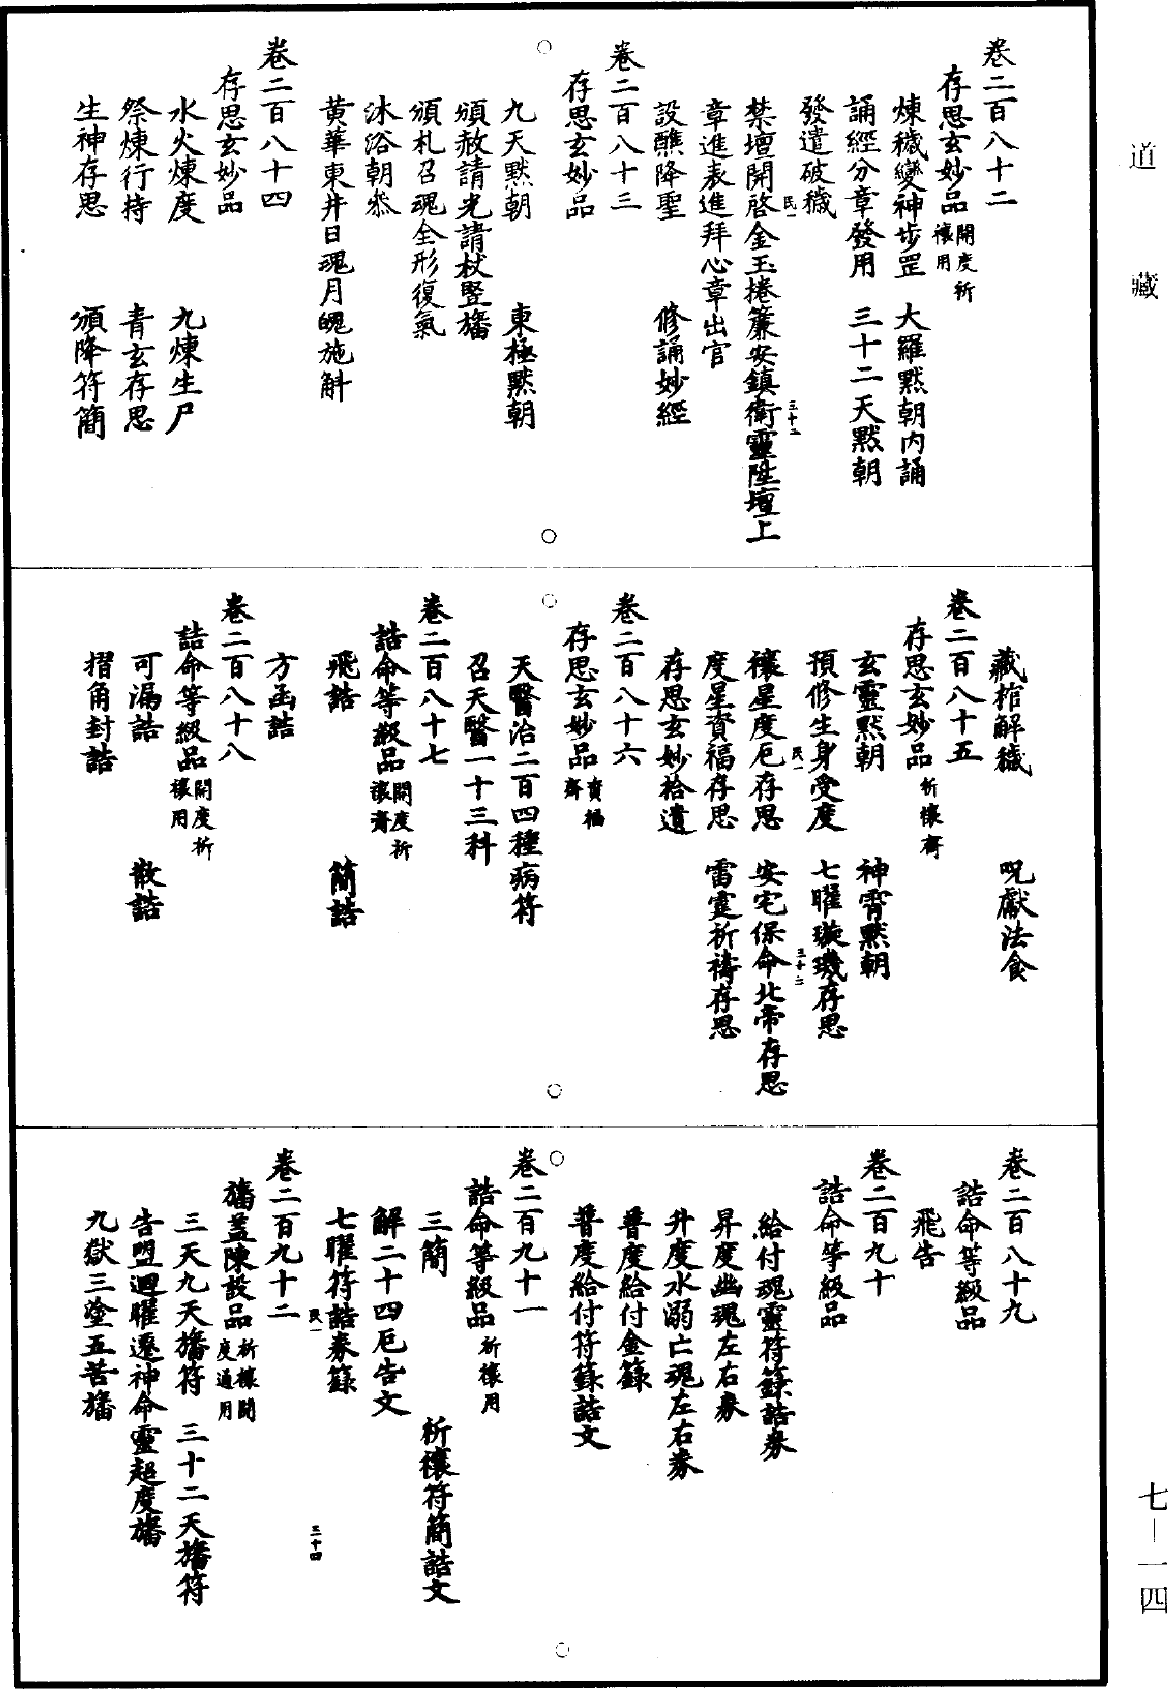 道藏
七—一四
卷二百八十二
存思玄妙品 開度祈禳用
煉穢變神步罡 大羅默朝內誦
誦經分章發用 三十二天默朝
發遣破穢
民一 三十三
禁壇開啓金玉捲簾安鎮衛靈陞壇上
章進表進拜心章出官
設醮降聖 修誦妙經
卷二百八十三
存思玄妙品
九天默朝 東極默朝
頒赦請光請杖豎旛
頒札召魂全形復氣
沐浴朝叅
黃華東井日魂月魄施斛
卷二百八十四
存思玄妙品
水火煉度 九煉生尸
祭煉行持 青玄存思
生神存思 頒降符簡
藏棺解穢 呪獻法食
卷二百八十五
存思玄妙品 祈禳齋
玄靈默朝 神霄默朝
預修生身受度 七曜璇璣存思
民一 三十二
禳星度厄存思 安宅保命北帝存思
度星資福存思 雷霆祈禱存思
存思玄妙拾遺
卷二百八十六
存思玄妙品 資福齋
天醫治二百四種病符
召天醫一十三科
卷二百八十七
誥命等級品 開度祈禳齋
飛誥 簡誥
方函誥
卷二百八十八
誥命等級品 開度祈禳用
可漏誥 散誥
摺角封誥
卷二百八十九
誥命等級品
飛告
卷二百九十
誥命等級品
給付魂靈符籙誥券
昇度幽魂左右券
升度水溺亡魂左右券
普度給付金籙
普度給付符籙誥文
卷二百九十一
誥命等級品 祈禳用
三簡 祈禳符簡誥文
解二十四厄告文
七曜符誥券籙
民一 三十四
卷二百九十二
旛蓋陳設品 祈禳開度通用
三天九天旛符 三十二天旛符
告盟迴曜遷神命靈超度旛
九獄三塗五苦旛